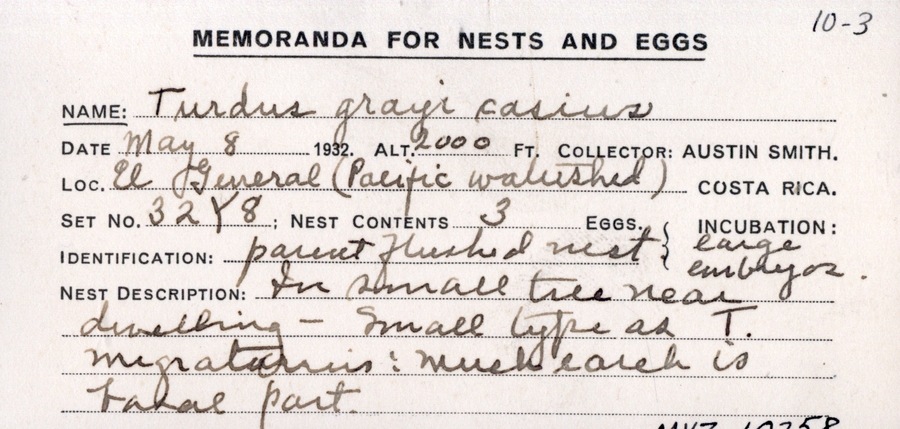 10-3
MEMORANDA FOR NESTS AND EGGS
NAME: Turdus grayi casius
DATE May 8 1932. ALT. 2000 FT. COLLECTOR: AUSTIN SMITH.
LOC. El General (Pacific watershed) COSTA RICA.
SET NO. 32Y8; NEST CONTENTS 3 EGGS. INCUBATION:
IDENTIFICATION: parent flushed nest } large
embryos.
NEST DESCRIPTION: In small tree near
dwelling - Small type as T.
migratorius: much earth is
basal part.